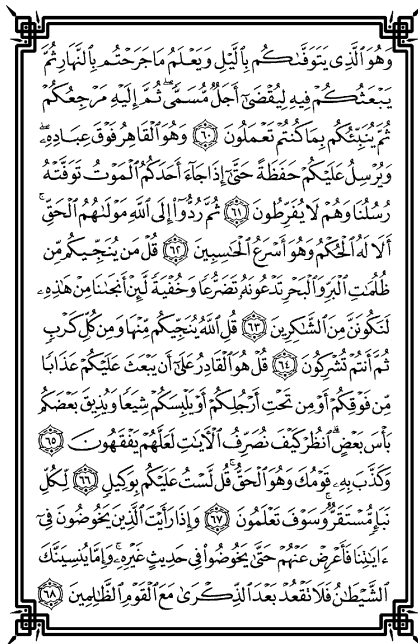 وَهُوَ ٱلَّذِى يَتَوَفَّىٰكُم بِٱلَّيْلِ وَيَعْلَمُ مَا جَرَحْتُم بِٱلنَّهَارِ ثُمَّ
يَبْعَثُكُمْ فِيهِ لِيُقْضَىٰٓ أَجَلٌ مُّسَمًّى ۖ ثُمَّ إِلَيْهِ مَرْجِعُكُمْ
ثُمَّ يُنَبِّئُكُم بِمَا كُنتُمْ تَعْمَلُونَ ٦٠ وَهُوَ ٱلْقَاهِرُ فَوْقَ عِبَادِهِۦ ۖ
وَيُرْسِلُ عَلَيْكُمْ حَفَظَةً حَتَّىٰٓ إِذَا جَآءَ أَحَدَكُمُ ٱلْمَوْتُ تَوَفَّتْهُ
رُسُلُنَا وَهُمْ لَا يُفَرِّطُونَ ٦١ ثُمَّ رُدُّوٓا۟ إِلَى ٱللَّهِ مَوْلَىٰهُمُ ٱلْحَقِّ ۚ
أَلَا لَهُ ٱلْحُكْمُ وَهُوَ أَسْرَعُ ٱلْحَـٰسِبِينَ ٦٢ قُلْ مَن يُنَجِّيكُم مِّن
ظُلُمَـٰتِ ٱلْبَرِّ وَٱلْبَحْرِ تَدْعُونَهُۥ تَضَرُّعًا وَخُفْيَةً لَّئِنْ أَنجَىٰنَا مِنْ هَـٰذِهِۦ
لَنَكُونَنَّ مِنَ ٱلشَّـٰكِرِينَ ٦٣ قُلِ ٱللَّهُ يُنَجِّيكُم مِّنْهَا وَمِن كُلِّ كَرْبٍ
ثُمَّ أَنتُمْ تُشْرِكُونَ ٦٤ قُلْ هُوَ ٱلْقَادِرُ عَلَىٰٓ أَن يَبْعَثَ عَلَيْكُمْ عَذَابًا
مِّن فَوْقِكُمْ أَوْ مِن تَحْتِ أَرْجُلِكُمْ أَوْ يَلْبِسَكُمْ شِيَعًا وَيُذِيقَ بَعْضَكُم
بَأْسَ بَعْضٍ ۗ ٱنظُرْ كَيْفَ نُصَرِّفُ ٱلْـَٔايَـٰتِ لَعَلَّهُمْ يَفْقَهُونَ ٦٥
وَكَذَّبَ بِهِۦ قَوْمُكَ وَهُوَ ٱلْحَقُّ ۚ قُل لَّسْتُ عَلَيْكُم بِوَكِيلٍ ٦٦ لِّكُلِّ
نَبَإٍ مُّسْتَقَرٌّ ۚ وَسَوْفَ تَعْلَمُونَ ٦٧ وَإِذَا رَأَيْتَ ٱلَّذِينَ يَخُوضُونَ فِىٓ
ءَايَـٰتِنَا فَأَعْرِضْ عَنْهُمْ حَتَّىٰ يَخُوضُوا۟ فِى حَدِيثٍ غَيْرِهِۦ ۚ وَإِمَّا يُنسِيَنَّكَ
ٱلشَّيْطَـٰنُ فَلَا تَقْعُدْ بَعْدَ ٱلذِّكْرَىٰ مَعَ ٱلْقَوْمِ ٱلظَّـٰلِمِينَ ٦٨